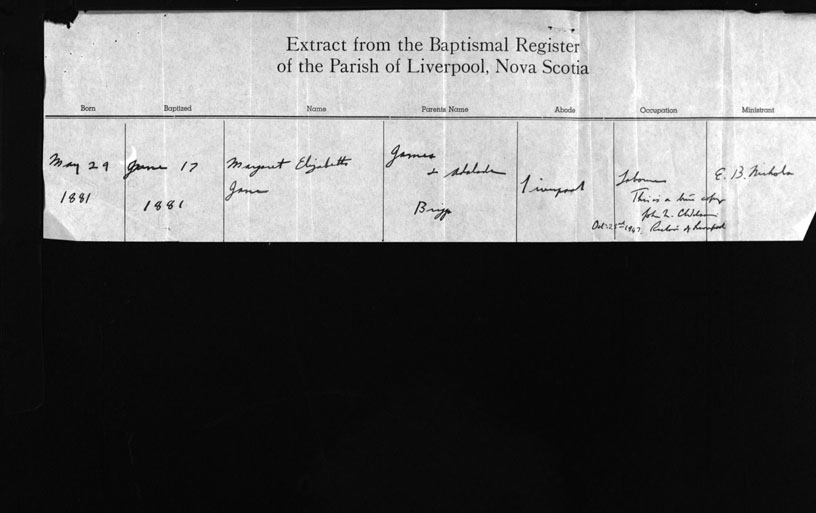 Extract from the Baptismal Register
of the Parish of Liverpool, Nova Scotia
Born Baptized Name Parents Name Abode Occupation Ministrant
May 29
1881
June 17
1881
Margaret Elizabeth
Jane
James
&
Liverpool
Labourer
E. B.
This is a true copy
John
Oct 1947. Rector of Liverpool